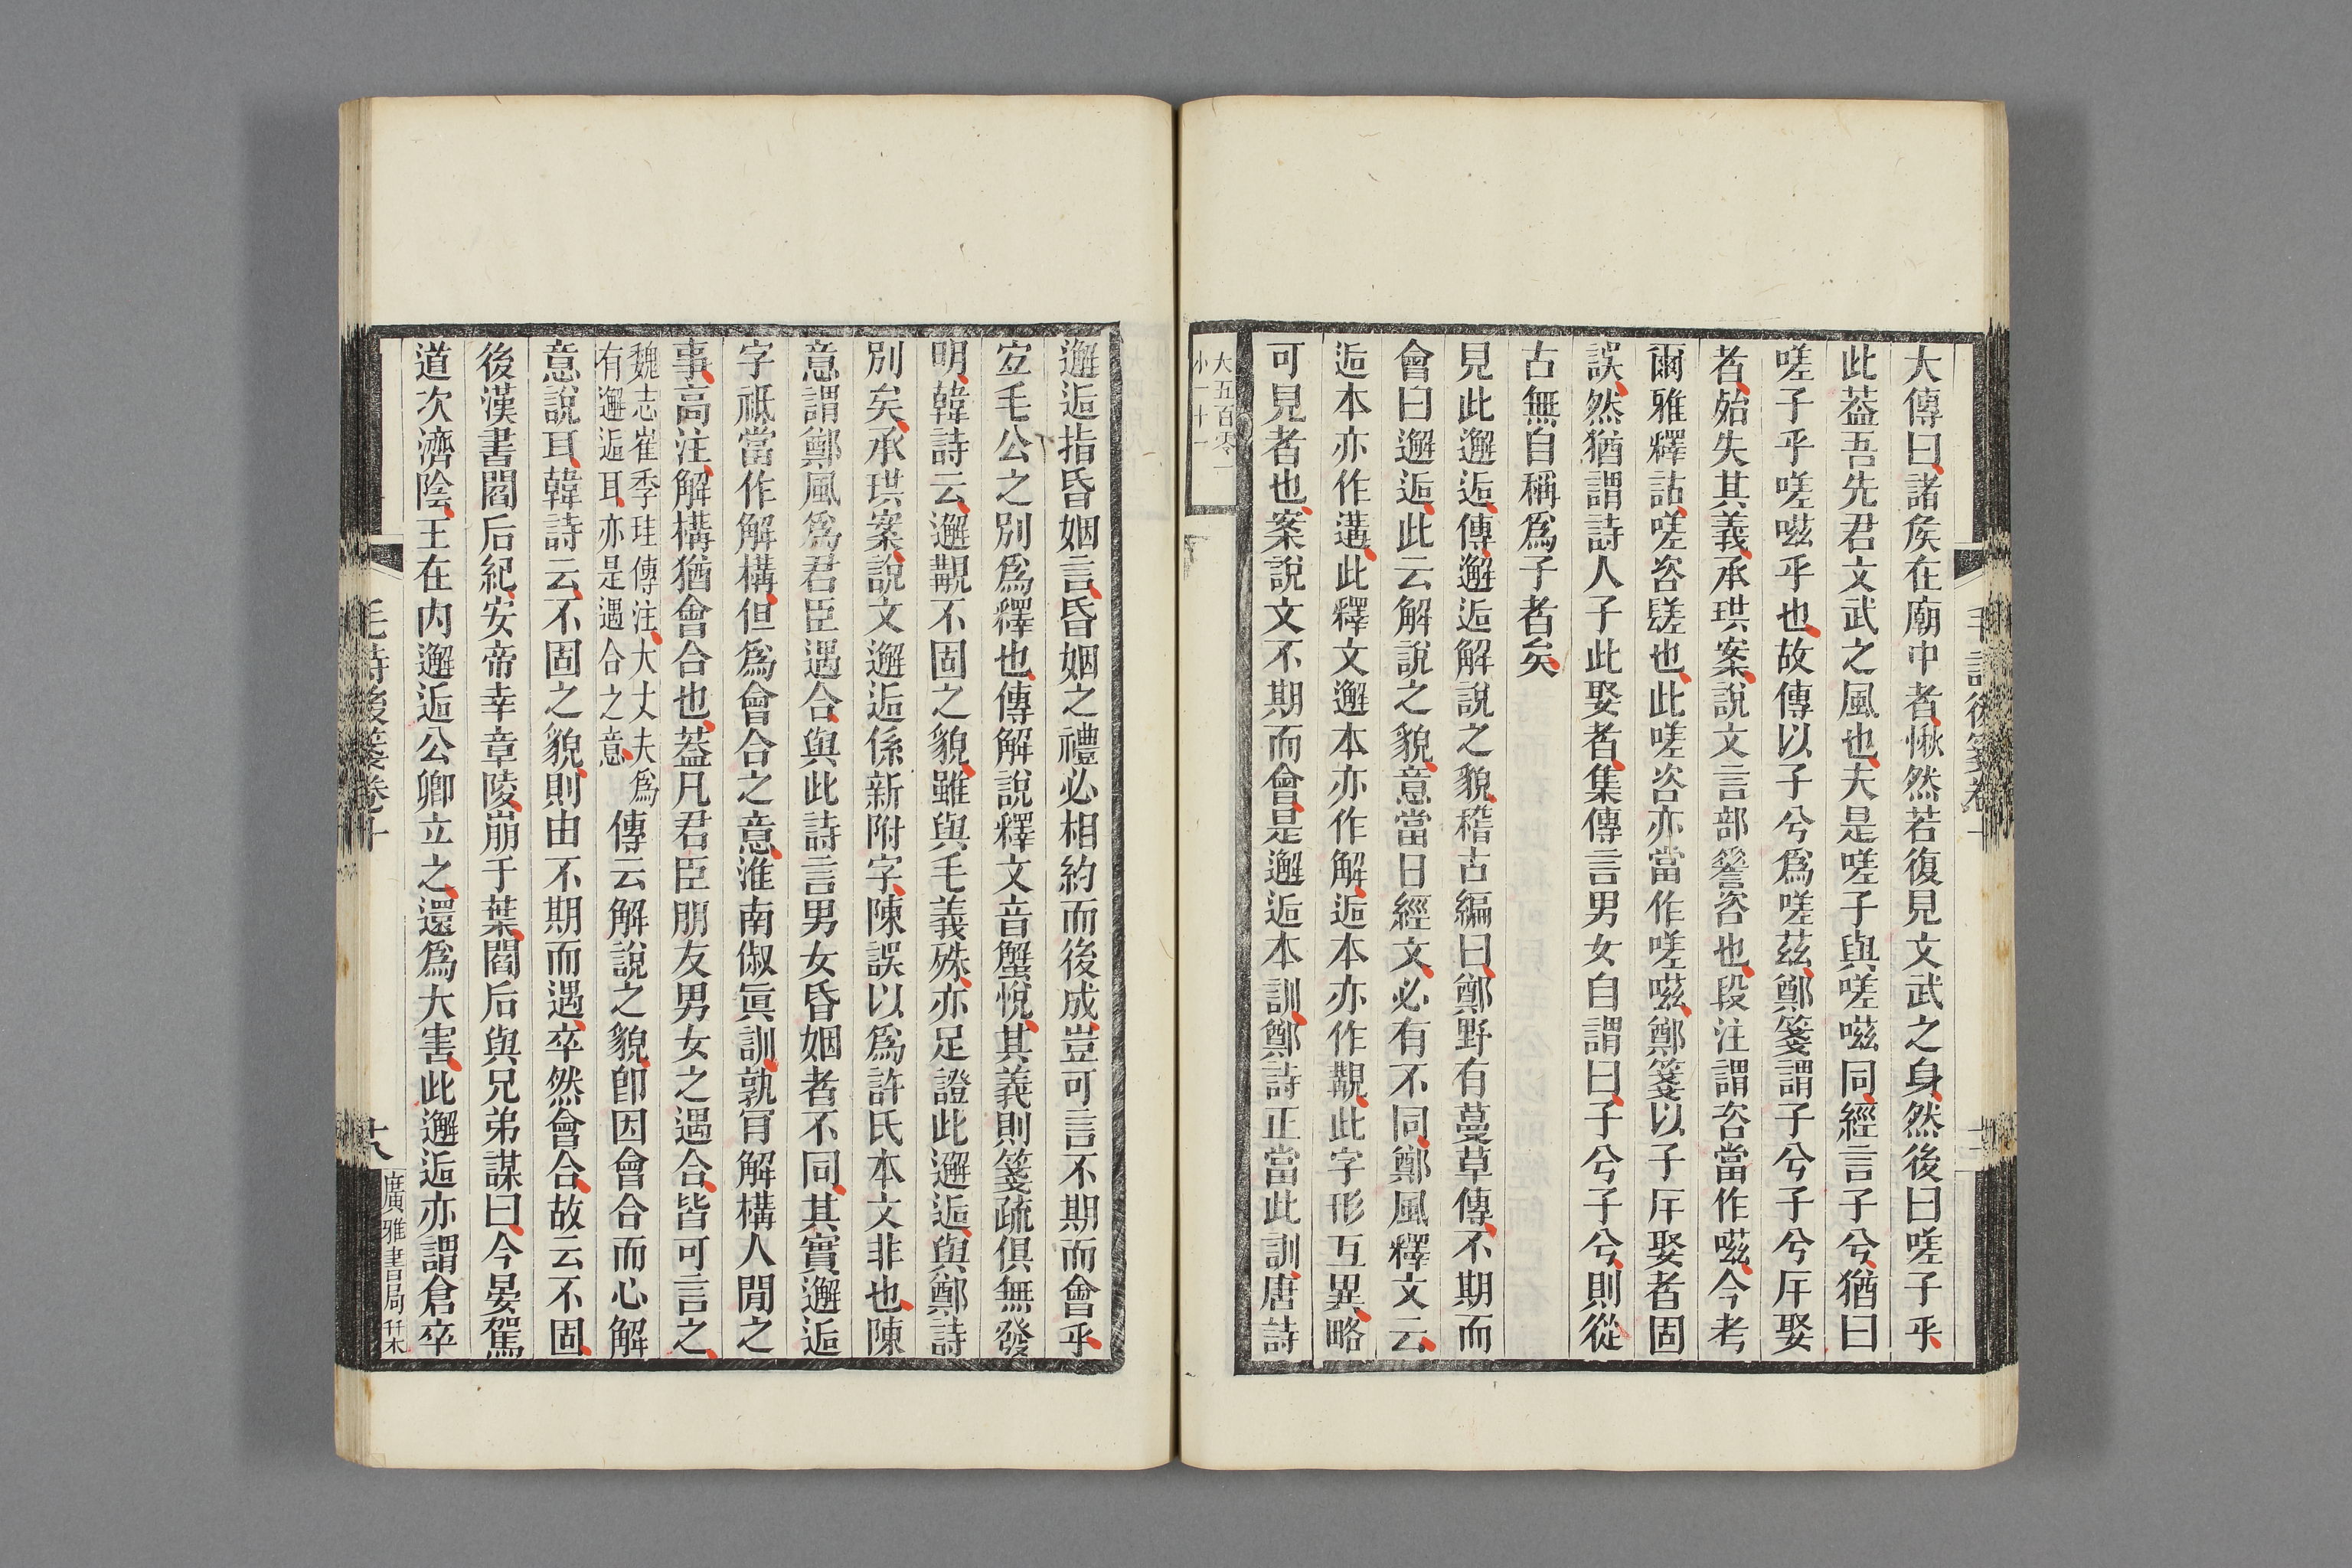 大傳曰諸矦在廟中者愀然若復見文武之身然後曰嗟子乎
此葢吾先君文武之風也夫是嗟子與嗟嗞同經言子兮猶曰
嗟子乎嗟嗞乎也故傳以子兮爲嗟茲鄭箋謂子兮子兮斥娶
者殆失其義承珙案說文言部謦咨也段注謂咨當作嗞今考
爾雅釋詁嗟咨䰩也此嗟咨亦當作嗟嗞鄭箋以子斥娶者固
誤然猶謂詩人子此娶者集傳言男女自謂曰子兮子兮則從
古無自稱爲子者矣
見此邂逅傳邂逅解說之貌稽古編曰鄭野有蔓草傳不期而
會曰邂逅此云解說之貌意當日經文必有不同鄭風釋文云
逅本亦作遘此釋文邂本亦作解逅本亦作覯此字形互異略
可見者也案說文不期而會是邂逅本訓鄭詩正當此訓唐詩
大五百零一
小一十一
毛詩後箋卷十
邂逅指昏姻言昏姻之禮必相約而後成豈可言不期而會乎
宐毛公之別爲釋也傳解說釋文音蟹悅其義則箋疏俱無發
明韓詩云邂覯不固之貌雖與毛義殊亦足證此邂逅與鄭詩
別矣承珙案說文邂逅係新附字陳誤以爲許氏本文非也陳
意謂鄭風爲君臣遇合與此詩言男女昏姻者不同其實邂逅
字祗當作解構但爲會合之意淮南俶眞訓孰肎解構人閒之
事高注解構猶會合也葢凡君臣朋友男女之遇合皆可言之
魏志崔季珪傳注大丈夫爲
有邂逅耳亦是遇合之意
傳云解說之貌卽因會合而心解
意說耳韓詩云不固之貌則由不期而遇卒然會合故云不固
後漢書閻后紀安帝幸章陵崩于葉閻后與兄弟謀曰今晏駕
道次濟陰王在内邂逅公卿立之還爲大害此邂逅亦謂倉卒
毛詩後箋卷十
十八
廣雅書局栞